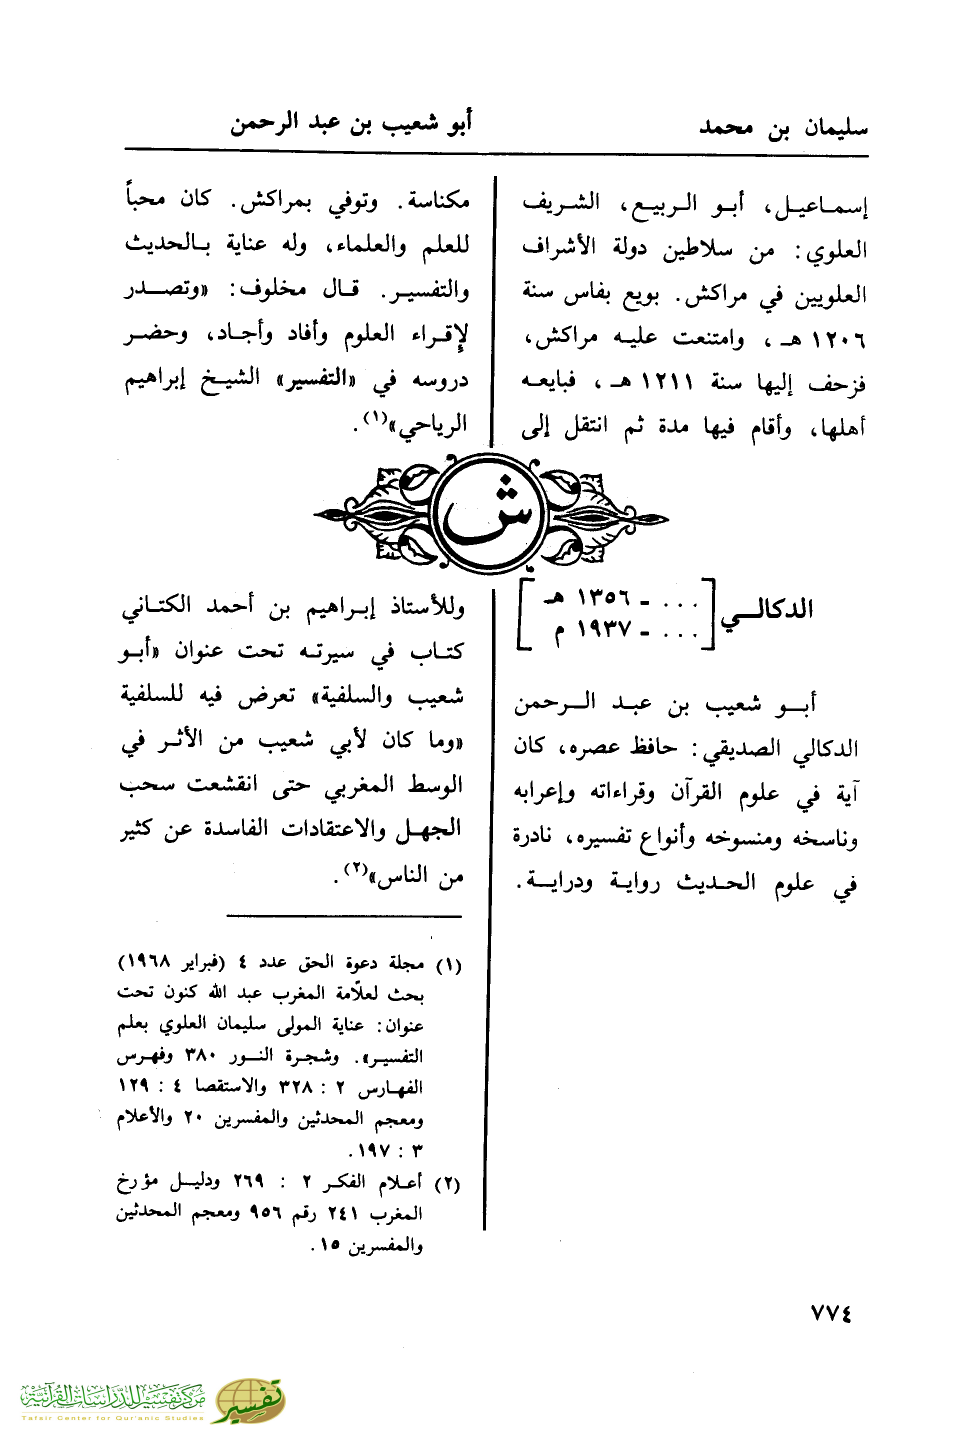 سليمان بن محمد
أبو شعيب بن عبد الرحمن
إسماعيل، أبو الربيع، الشريف
العلوي: من سلاطين دولة الأشراف
العلويين في مراكش. بويع بفاس سنة
١٢٠٦ هـ، وامتنعت عليه مراكش،
فزحف إليها سنة ١٢١١ هـ، فبايعه
أهلها، وأقام فيها مدة ثم انتقل إلى
مكناسة. وتوفي بمراكش. كان محباً
للعلم والعلماء، وله عناية بالحديث
والتفسير. قال مخلوف: «وتصدر
لإقراء العلوم وأفاد وأجاد، وحضر
دروسه في «التفسير» الشيخ إبراهيم
الرياحي»(١).
ش
الدكالي [... - ١٣٥٦ هـ
... - ١٩٣٧ م]
أبو شعيب بن عبد الرحمن
الدكالي الصديقي: حافظ عصره، كان
آية في علوم القرآن وقراءاته وإعرابه
وناسخه ومنسوخه وأنواع تفسيره، نادرة
في علوم الحديث رواية ودراية.
وللأستاذ إبراهيم بن أحمد الكتاني
كتاب في سيرته تحت عنوان «أبو
شعيب والسلفية» تعرض فيه للسلفية
«وما كان لأبي شعيب من الأثر في
الوسط المغربي حتى انقشعت سحب
الجهل والاعتقادات الفاسدة عن كثير
من الناس»(٢).
(١) مجلة دعوة الحق عدد ٤ (فبراير ١٩٦٨)
بحث لعلّامة المغرب عبد الله كنون تحت
عنوان: عناية المولى سليمان العلوي بعلم
التفسير». وشجرة النور ٣٨٠ وفهرس
الفهارس ٢ : ٣٢٨ والاستقصا ٤ : ١٢٩
ومعجم المحدثين والمفسرين ٢٠ والأعلام
٣ : ١٩٧.
(٢) أعلام الفكر ٢ : ٢٦٩ ودليل مؤرخ
المغرب ٢٤١ رقم ٩٥٦ ومعجم المحدثين
والمفسرين ١٥.
٧٧٤
مركز تفسير للدراسات القرآنية
Tafsir Center for Qur'anic Studies
تفسير